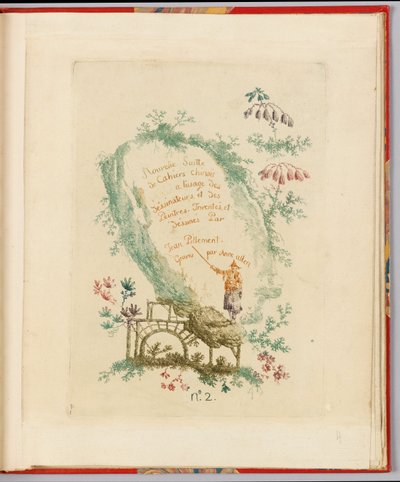 Nouvelle Suitte
de Cahiers Chinois
a l'usage des
Dessinateurs et des
Peintres. Inventés et
Dessinés Par
Jean Pillement.
Gravés par Anne allen
N.º 2.